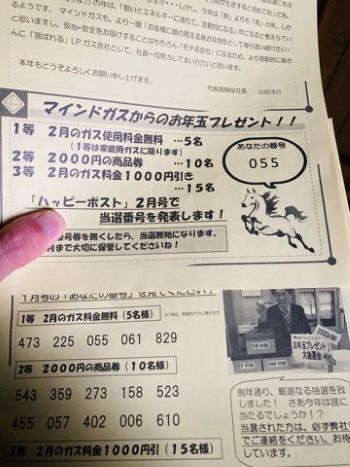 るようです。 マインドガスも、より一層「お客様に顔の見える身近な存在として寄り添い続けたい」
と思いますし、安心・安全をお届けすることはもちろん「モテる会社」になるため、より活動的に皆さ
んに「選ばれる」LPガス会社として、社員一同努力してまいりたいと思います。
本年もどうぞよろしくお願い申し上げます。
代表取締役社長 山田洋介
マインドガスからのお年玉プレゼント!!
1等 2月のガス使用料金無料 …5名
(1等は家庭用ガスに限ります)
2等 2000円の商品券 …10名
3等 2月のガス料金1000円引き
…15名
あなたの番号
055
「ハッピーポスト」2月号で
当選番号を発表します!
番号券を無くしたら、当選無効になります。
月まで大切に保管してくださいね!
1月号の「あなたの番号」を見てください!
1等 2月のガス料金無料(5名様)
473 225 055 061 829
2等 2000円の商品券(10名様)
543 359 273 158 523
455 057 402 006 610
3等 2月のガス料金1000円引(15名様)
お年玉プレゼント
大抽選会
例年通り、厳選なる抽選を致
しました! さあ今年は誰に
当たるでしょうか!?
当選された方は、必ず弊社
でご連絡をください。お待
しています。